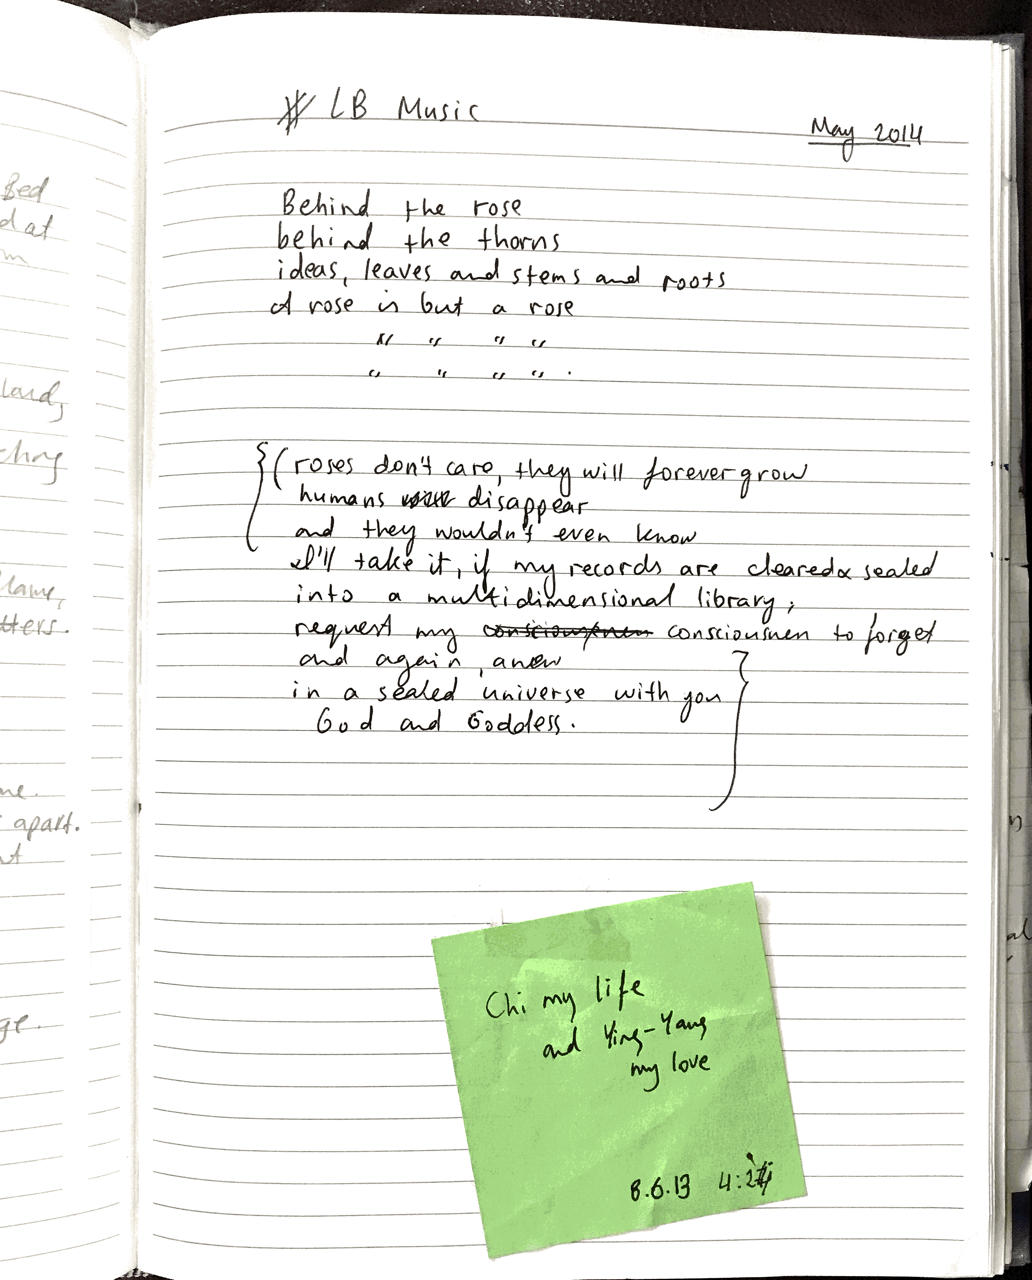 # LB Music
May 2014
Behind the rose
behind the thorns
ideas, leaves and stems and roots
A rose is but a rose
" " " "
" " " " .
{ ( roses don't care, they will forever grow
humans disappear
and they wouldn't even know
I'll take it, if my records are cleared & sealed
into a multidimensional library;
request my consciousnen consciousnen to forget
and again, anew
in a sealed universe with you }
God and Goddess.
Chi my life
and Ying-Yang
my love
8.6.13 4:24
Bed
d at
m
land,
ching
lame,
tters.
me.
apart.
ut
ge.